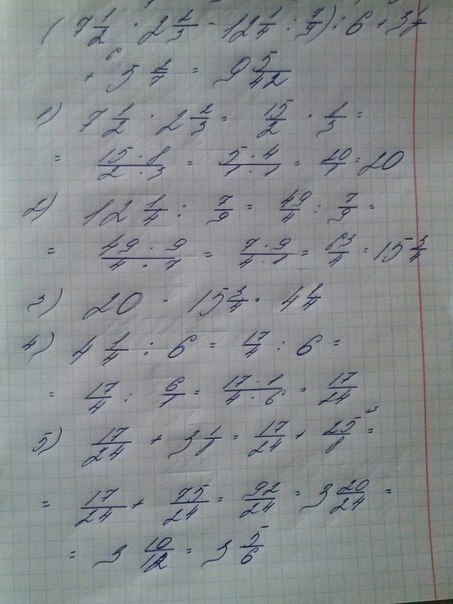 (7 1/2 · 2 2/3 - 12 1/4 : 7/9) : 6 + 3 1/8
+ 5 2/7 = 9 5/42
1) 7 1/2 · 2 2/3 = 15/2 · 8/3 =
= 15 · 8/2 · 3 = 5 · 4/1 · 1 = 20/1 = 20
2) 12 1/4 : 7/9 = 49/4 : 7/9 =
= 49 · 9/4 · 7 = 7 · 9/4 · 1 = 63/4 = 15 3/4
3) 20 - 15 3/4 = 4 1/4
4) 4 1/4 : 6 = 17/4 : 6 =
= 17/4 : 6/1 = 17 · 1/4 · 6 = 17/24
5) 17/24 + 3 1/8 = 17/24 + 25/8 =
= 17/24 + 75/24 = 92/24 = 3 20/24 =
= 3 10/12 = 3 5/6